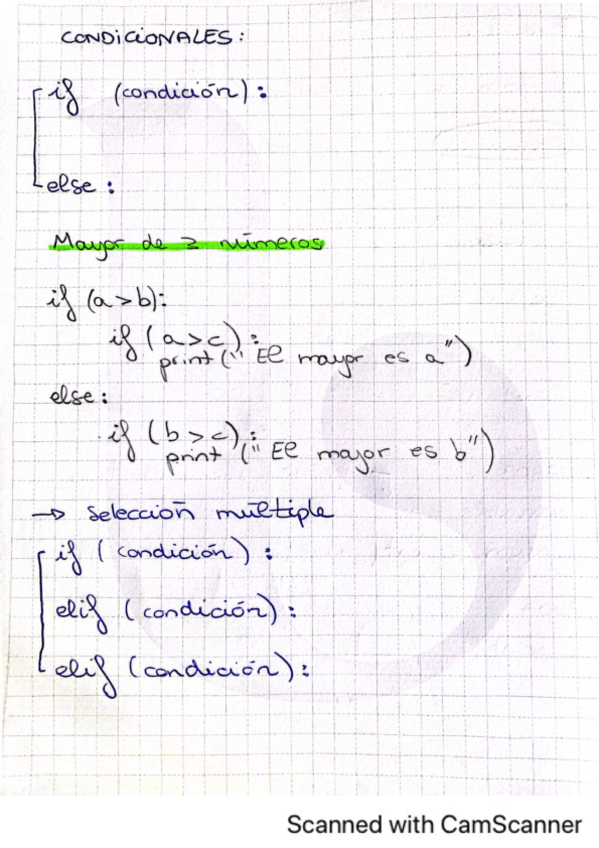 CONDICIONALES:
if (condición):
else:
Mayor de 2 números
if (a>b):
if (a>c):
print("El mayor es a")
else:
if (b>c):
print("El mayor es b")
→ Selección múltiple
if (condición):
elif (condición):
elif (condición):
Scanned with CamScanner